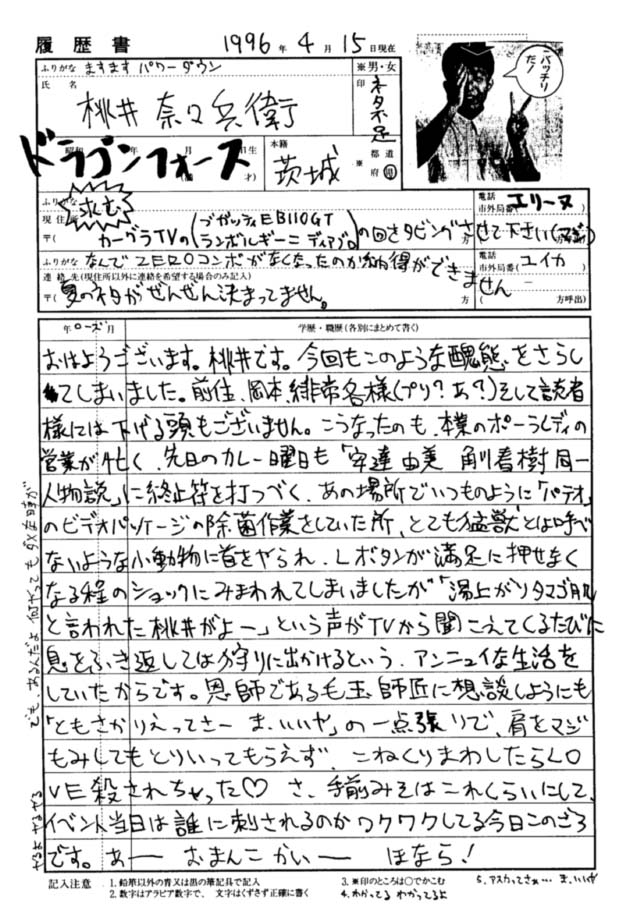 履歴書 1996年4月15日現在
バッチリだ!
ふりがな ますます パワーダウン
※男・女
氏名
桃井 奈々兵衛
印
ネタ不足
昭和 年 月 日生
(満 才)
ドラゴンフォース
本籍
茨城
※ 都道府県
ふりがな
求む
現住所
〒( カーグラTVの(ブガッティEB110GT ランボルギーニ ディアブロ)の回をダビングさせて下さい(マジ)
電話
市外局番( エリーヌ )
方呼出)
ふりがな なんで ZEROコンボがなくなったのか納得ができません
連絡先(現住所以外に連絡を希望する場合のみ記入)
〒( 夏のネタがぜんぜん決まってません。 方
電話
市外局番( ユイカ )
( 方呼出)
年 ローズ 月
学歴・職歴(各別にまとめて書く)
おはようございます。桃井です。今回もこのような醜態をさらし
てしまいました。前住、岡本、緋常各様(プリ?あ?)そして読者
様には下げる頭もございません。こうなったのも、本業のポーラレディの
営業が忙しく、先日のカレー曜日も「安達由美 角川春樹同一
人物説」に終止符を打つべく、あの場所でいつものように「パテオ」
のビデオパッケージの除菌作業をしていた所、とても猛獣とは呼べ
ないような小動物に首をやられ、Lボタンが満足に押せなく
なる程のショックにみまわれてしまいましたが「湯上がりタマゴ肌
と言われた桃井がよー」という声がTVから聞こえてくるたびに
息をふき返しては狩りに出かけるという、アンニュイな生活を
していたからです。恩師である毛玉師匠に想談しようにも
「ともさかりえってさー ま、いいや」の一点張りで、肩をマジ
もみしてもとりいってもらえず、こねくりまわしたらLO
VE殺されちゃった♡ さ、手前みそはこれくらいにして、
イベント当日は誰に刺されるのかワクワクしてる今日このごろ
です。あー おまんこかいー ほなら!
でも、あるんだよ 何やっても ダメな時が
やるよ やるやる
記入注意
1. 鉛筆以外の青又は黒の筆記具で記入
2. 数字はアラビア数字で、文字はくずさず正確に書く
3. ※印のところは○でかこむ
4. わかってる わかってるよ
5. アスカってさぁ… ま、いいや